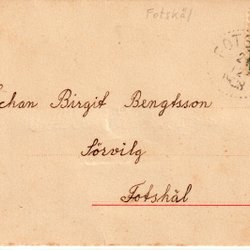 Fotskäl
Johan Birgit Bengtsson
Sörvilg
Fotskäl